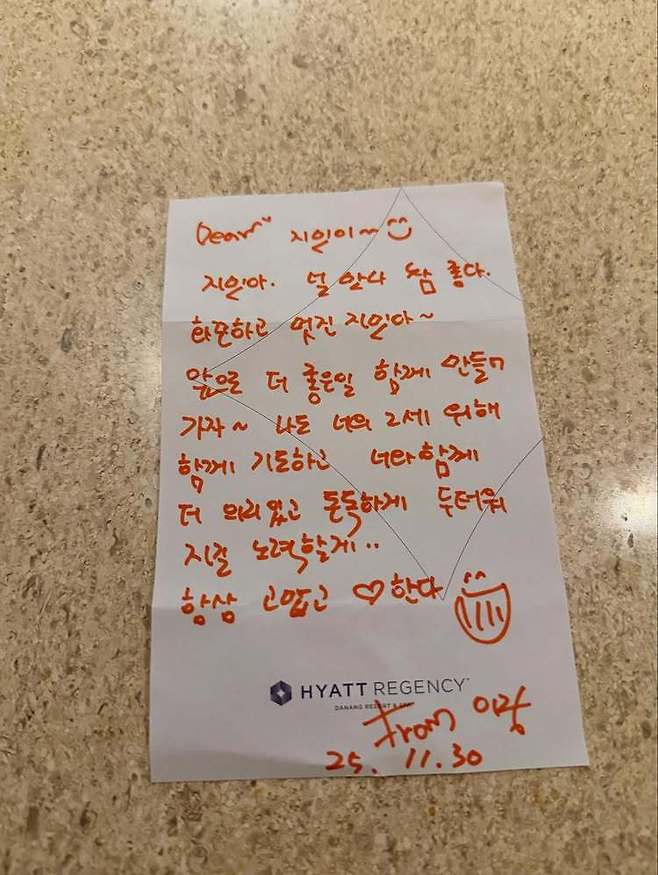 Dear~ 지인이~
지인아. 널 만나 참 좋다.
화끈하고 멋진 지인아~
앞으로 더 좋은일 함께 만들어
가자~ 나도 너의 2세 위해
함께 기도하고 너랑 함께
더 의리있고 돈독하게 두터워
지길 노력할게..
항상 고맙고 ♡한다
HYATT REGENCY
DANANG RESORT & SPA
From
25. 11.30